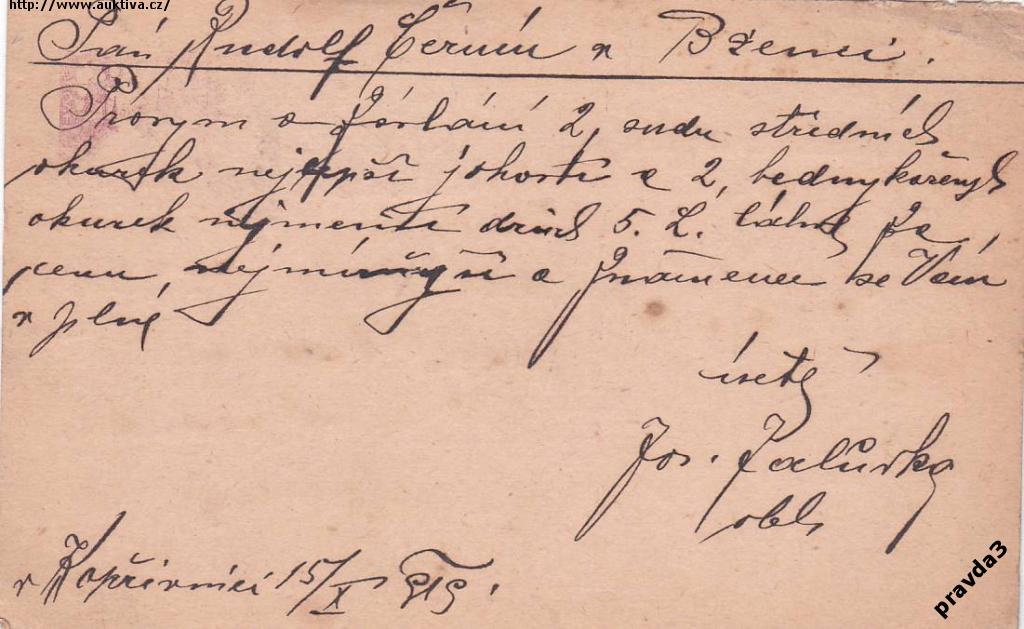 http://www.auktiva.cz/
Pán Rudolf Černín v Bzenci.
Prosym o zaslání 2, sudu středních
okurek nejlepší jakosti a 2, bedny
okurek nejmenší druh 5. L. za
cenu nejmírnější a se Vám
v plné
úctě
Jos. Zalurka
obch
v Kopřivnici 15/X 919.
pravda3